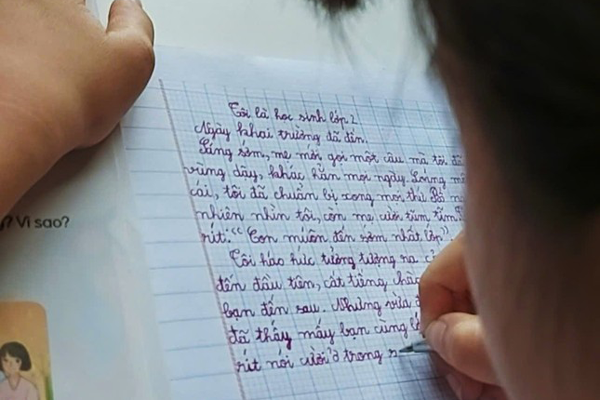 ? Vì sao?
Tôi là học sinh lớp 2
Ngày khai trường đã đến.
Sáng sớm, mẹ mới gọi một câu mà tôi đã
vùng dậy, khác hẳn mọi ngày. Loáng một
cái, tôi đã chuẩn bị xong mọi thứ. Bố
nhiên nhìn tôi, còn mẹ cười tủm tỉm.
rít: "Con muốn đến sớm nhất lớp."
Tôi háo hức tưởng tượng ra
đến đầu tiên, cất tiếng chào
bạn đến sau. Nhưng vừa
đã thấy mấy bạn cùng
rít nói cười ở trong